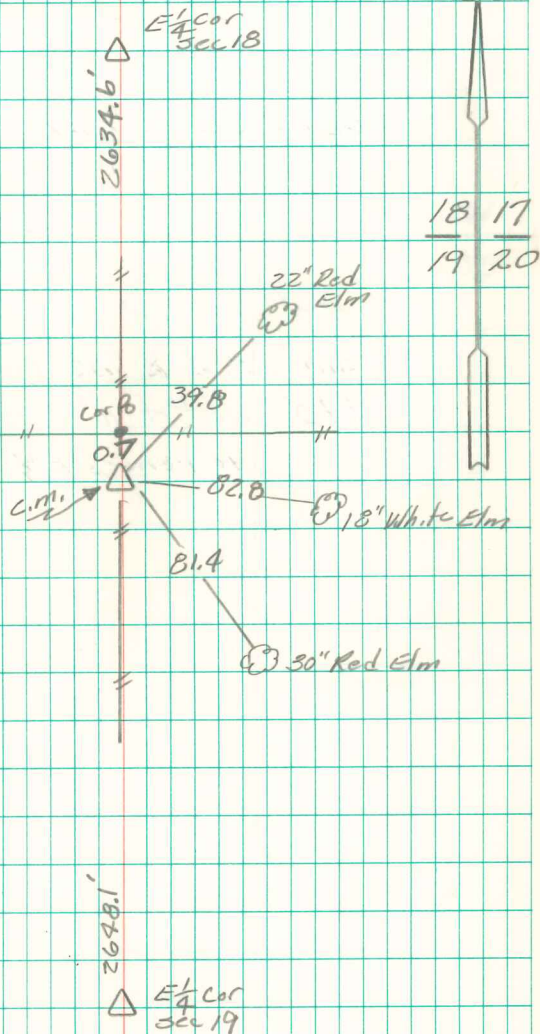 E 1/4 Cor
sec 18
2634.6'
18 17
19 20
22" Red
Elm
39.8
Cor Po
0.7
C.M.
82.8
18" White Elm
81.4
30" Red Elm
2648.1'
E 1/4 Cor
sec 19